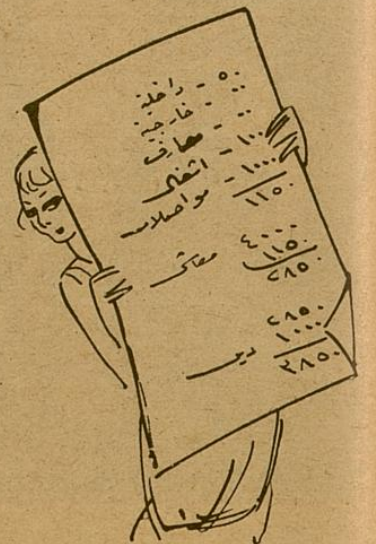 ٥٠ - داخلية
٠٠ - خارجية
٠٠ - معارف
١٠٠ - اشغال
١٠٠٠ - مواصلات
١١٥٠
٤٠٠٠
١١٥٠ معاش
٢٨٥٠
٢٨٥٠
١٠٠٠ دين
٣٨٥٠